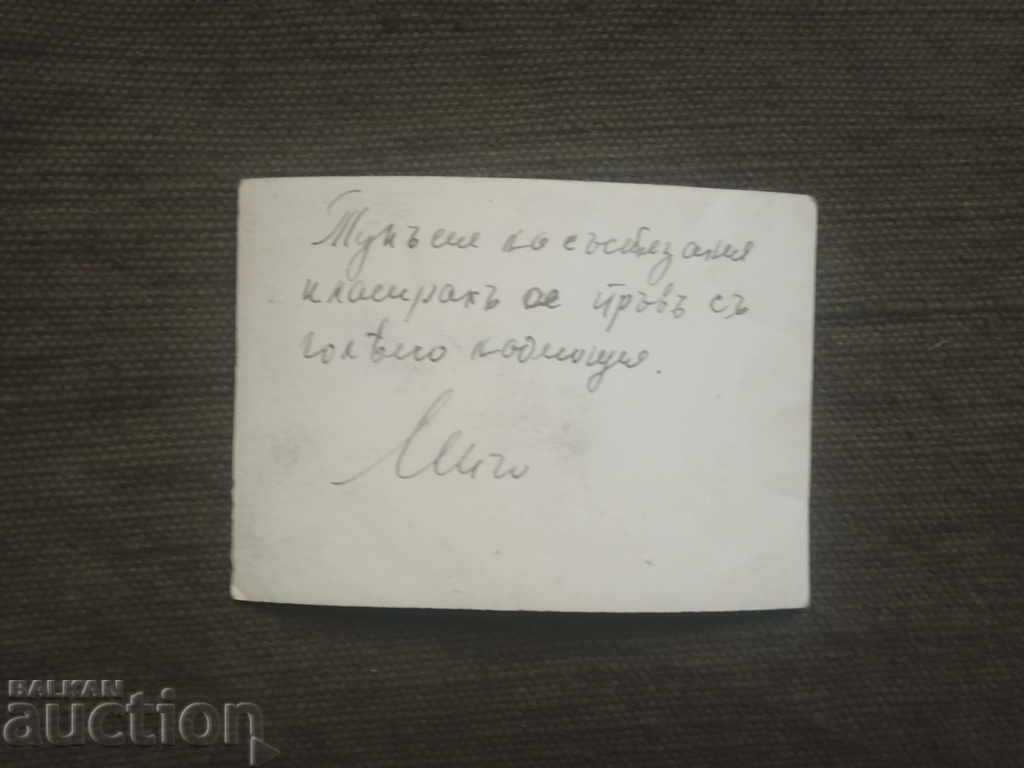 Тукъ сме на състезания
класирахъ се пръвъ съ
голѣмо надмощие.
BALKAN
auction